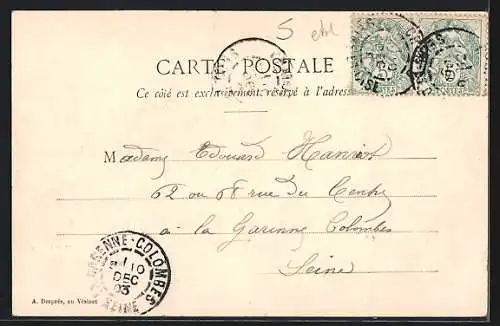 5 ebl
CARTE POSTALE
Ce côté est exclusivement réservé à l'adresse
Madame Edouard Hanriot
62 ou 68 rue du Centre
à la Garenne Colombes
Seine
LA GARENNE-COLOMBES
10
DEC
03
SEINE
A. Desprès, au Vésinet